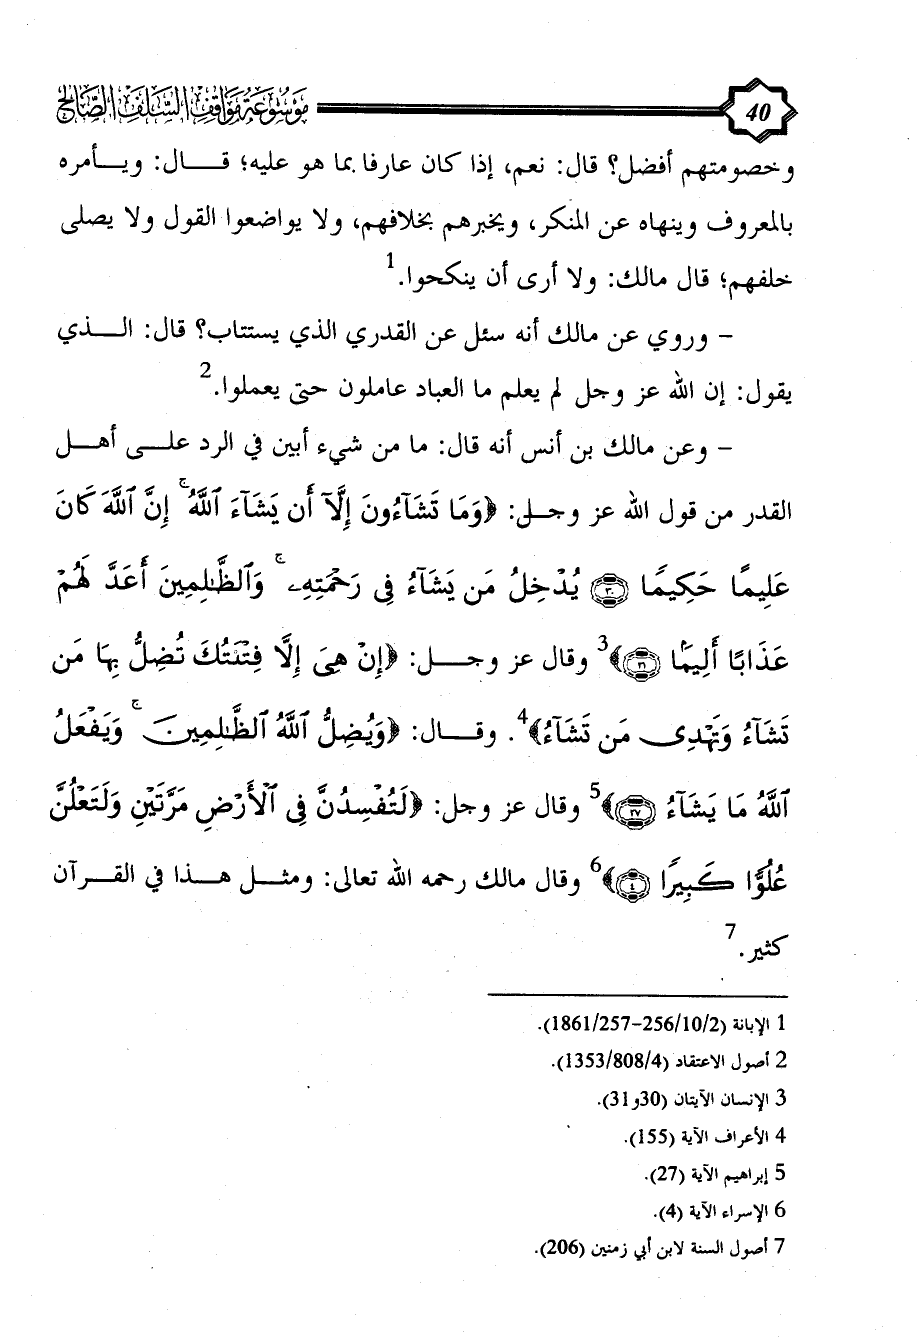 موسوعة مواقف السلف الصالح 40
وخصومتهم أفضل؟ قال: نعم، إذا كان عارفا بما هو عليه؛ قـــال: ويـــأمره
بالمعروف وينهاه عن المنكر، ويخبرهم بخلافهم، ولا يواضعوا القول ولا يصلى
خلفهم؛ قال مالك: ولا أرى أن ينكحوا.1
– وروي عن مالك أنه سئل عن القدري الذي يستتاب؟ قال: الـــذي
يقول: إن الله عز وجل لم يعلم ما العباد عاملون حتى يعملوا.2
– وعن مالك بن أنس أنه قال: ما من شيء أبين في الرد علـــى أهـــل
القدر من قول الله عز وجـــل: ﴿وَمَا تَشَآءُونَ إِلَّآ أَن يَشَآءَ ٱللَّهُ ۚ إِنَّ ٱللَّهَ كَانَ
عَلِيمًا حَكِيمًا ۝٣٠ يُدْخِلُ مَن يَشَآءُ فِى رَحْمَتِهِۦ ۚ وَٱلظَّـٰلِمِينَ أَعَدَّ لَهُمْ
عَذَابًا أَلِيمًۢا ۝٣١﴾3 وقال عز وجـــل: ﴿إِنْ هِىَ إِلَّا فِتْنَتُكَ تُضِلُّ بِهَا مَن
تَشَآءُ وَتَهْدِى مَن تَشَآءُ﴾4. وقـــال: ﴿وَيُضِلُّ ٱللَّهُ ٱلظَّـٰلِمِينَ ۚ وَيَفْعَلُ
ٱللَّهُ مَا يَشَآءُ ۝٢٧﴾5 وقال عز وجل: ﴿لَتُفْسِدُنَّ فِى ٱلْأَرْضِ مَرَّتَيْنِ وَلَتَعْلُنَّ
عُلُوًّا كَبِيرًا ۝٤﴾6 وقال مالك رحمه الله تعالى: ومثـــل هـــذا في القـــرآن
كثير.7
1 الإبانة (2/10/256-257/1861).
2 أصول الاعتقاد (4/808/1353).
3 الإنسان الآيتان (30و31).
4 الأعراف الآية (155).
5 إبراهيم الآية (27).
6 الإسراء الآية (4).
7 أصول السنة لابن أبي زمنين (206).